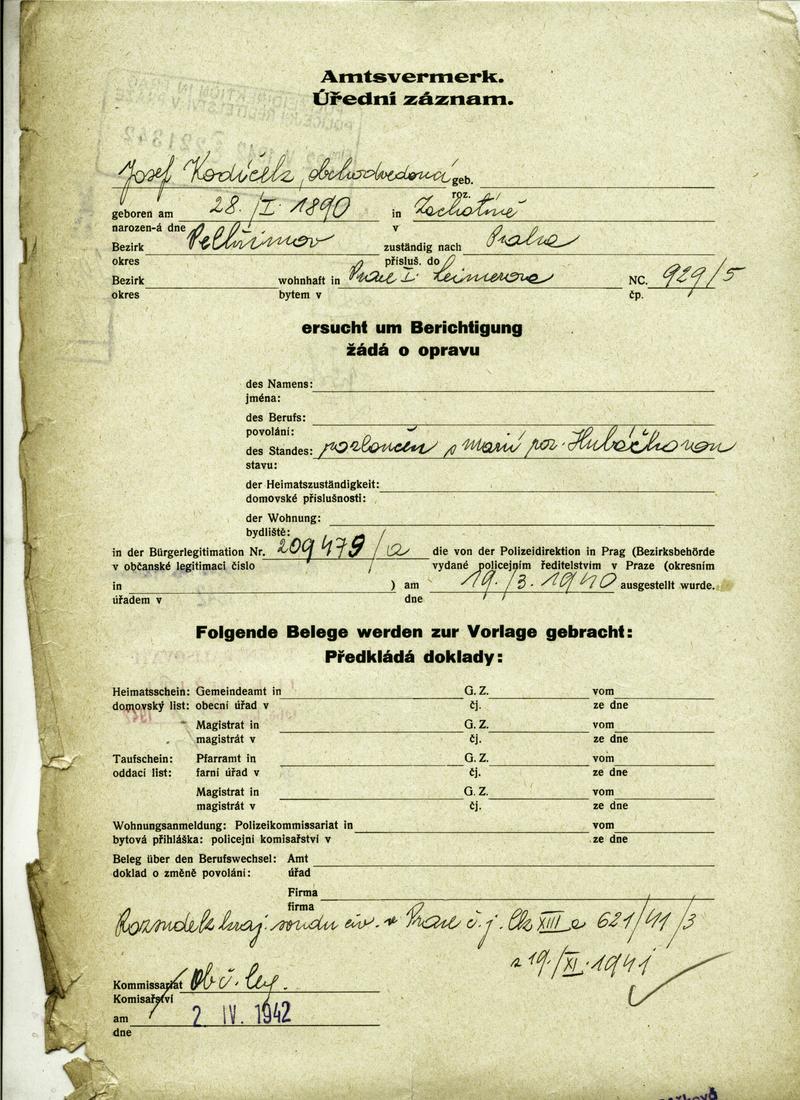 Amtsvermerk.
Úřední záznam.
Josef Kodíček, obchodvedoucí geb.
roz.
geboren am 28./I. 1890 in Zachotíně
narozen-á dne v
Bezirk Pelhřimov zuständig nach Praha
okres přísluš. do
Bezirk wohnhaft in Praze I. NC. 929/5
okres bytem v čp.
ersucht um Berichtigung
žádá o opravu
des Namens:
jména:
des Berufs:
povolání:
des Standes: rozloučen s Marií roz. Hubáčkovou
stavu:
der Heimatszuständigkeit:
domovské příslušnosti:
der Wohnung:
bydliště:
in der Bürgerlegitimation Nr. 209479/ die von der Polizeidirektion in Prag (Bezirksbehörde
v občanské legitimaci číslo vydané policejním ředitelstvím v Praze (okresním
in ) am 19./3. 1940 ausgestellt wurde.
úřadem v dne
Folgende Belege werden zur Vorlage gebracht:
Předkládá doklady:
Heimatsschein: Gemeindeamt in G. Z. vom
domovský list: obecní úřad v čj. ze dne
Magistrat in G. Z. vom
magistrát v čj. ze dne
Taufschein: Pfarramt in G. Z. vom
oddací list: farní úřad v čj. ze dne
Magistrat in G. Z. vom
magistrát v čj. ze dne
Wohnungsanmeldung: Polizeikommissariat in vom
bytová přihláška: policejní komisařství v ze dne
Beleg über den Berufswechsel: Amt
doklad o změně povolání: úřad
Firma
firma
Rozsudek kraj. soudu civ. v Praze č. j. Ck XIII a 621/41/3
z 19./XI. 1941
Kommissariat Obč. leg.
Komisařství
am 2. IV. 1942
dne